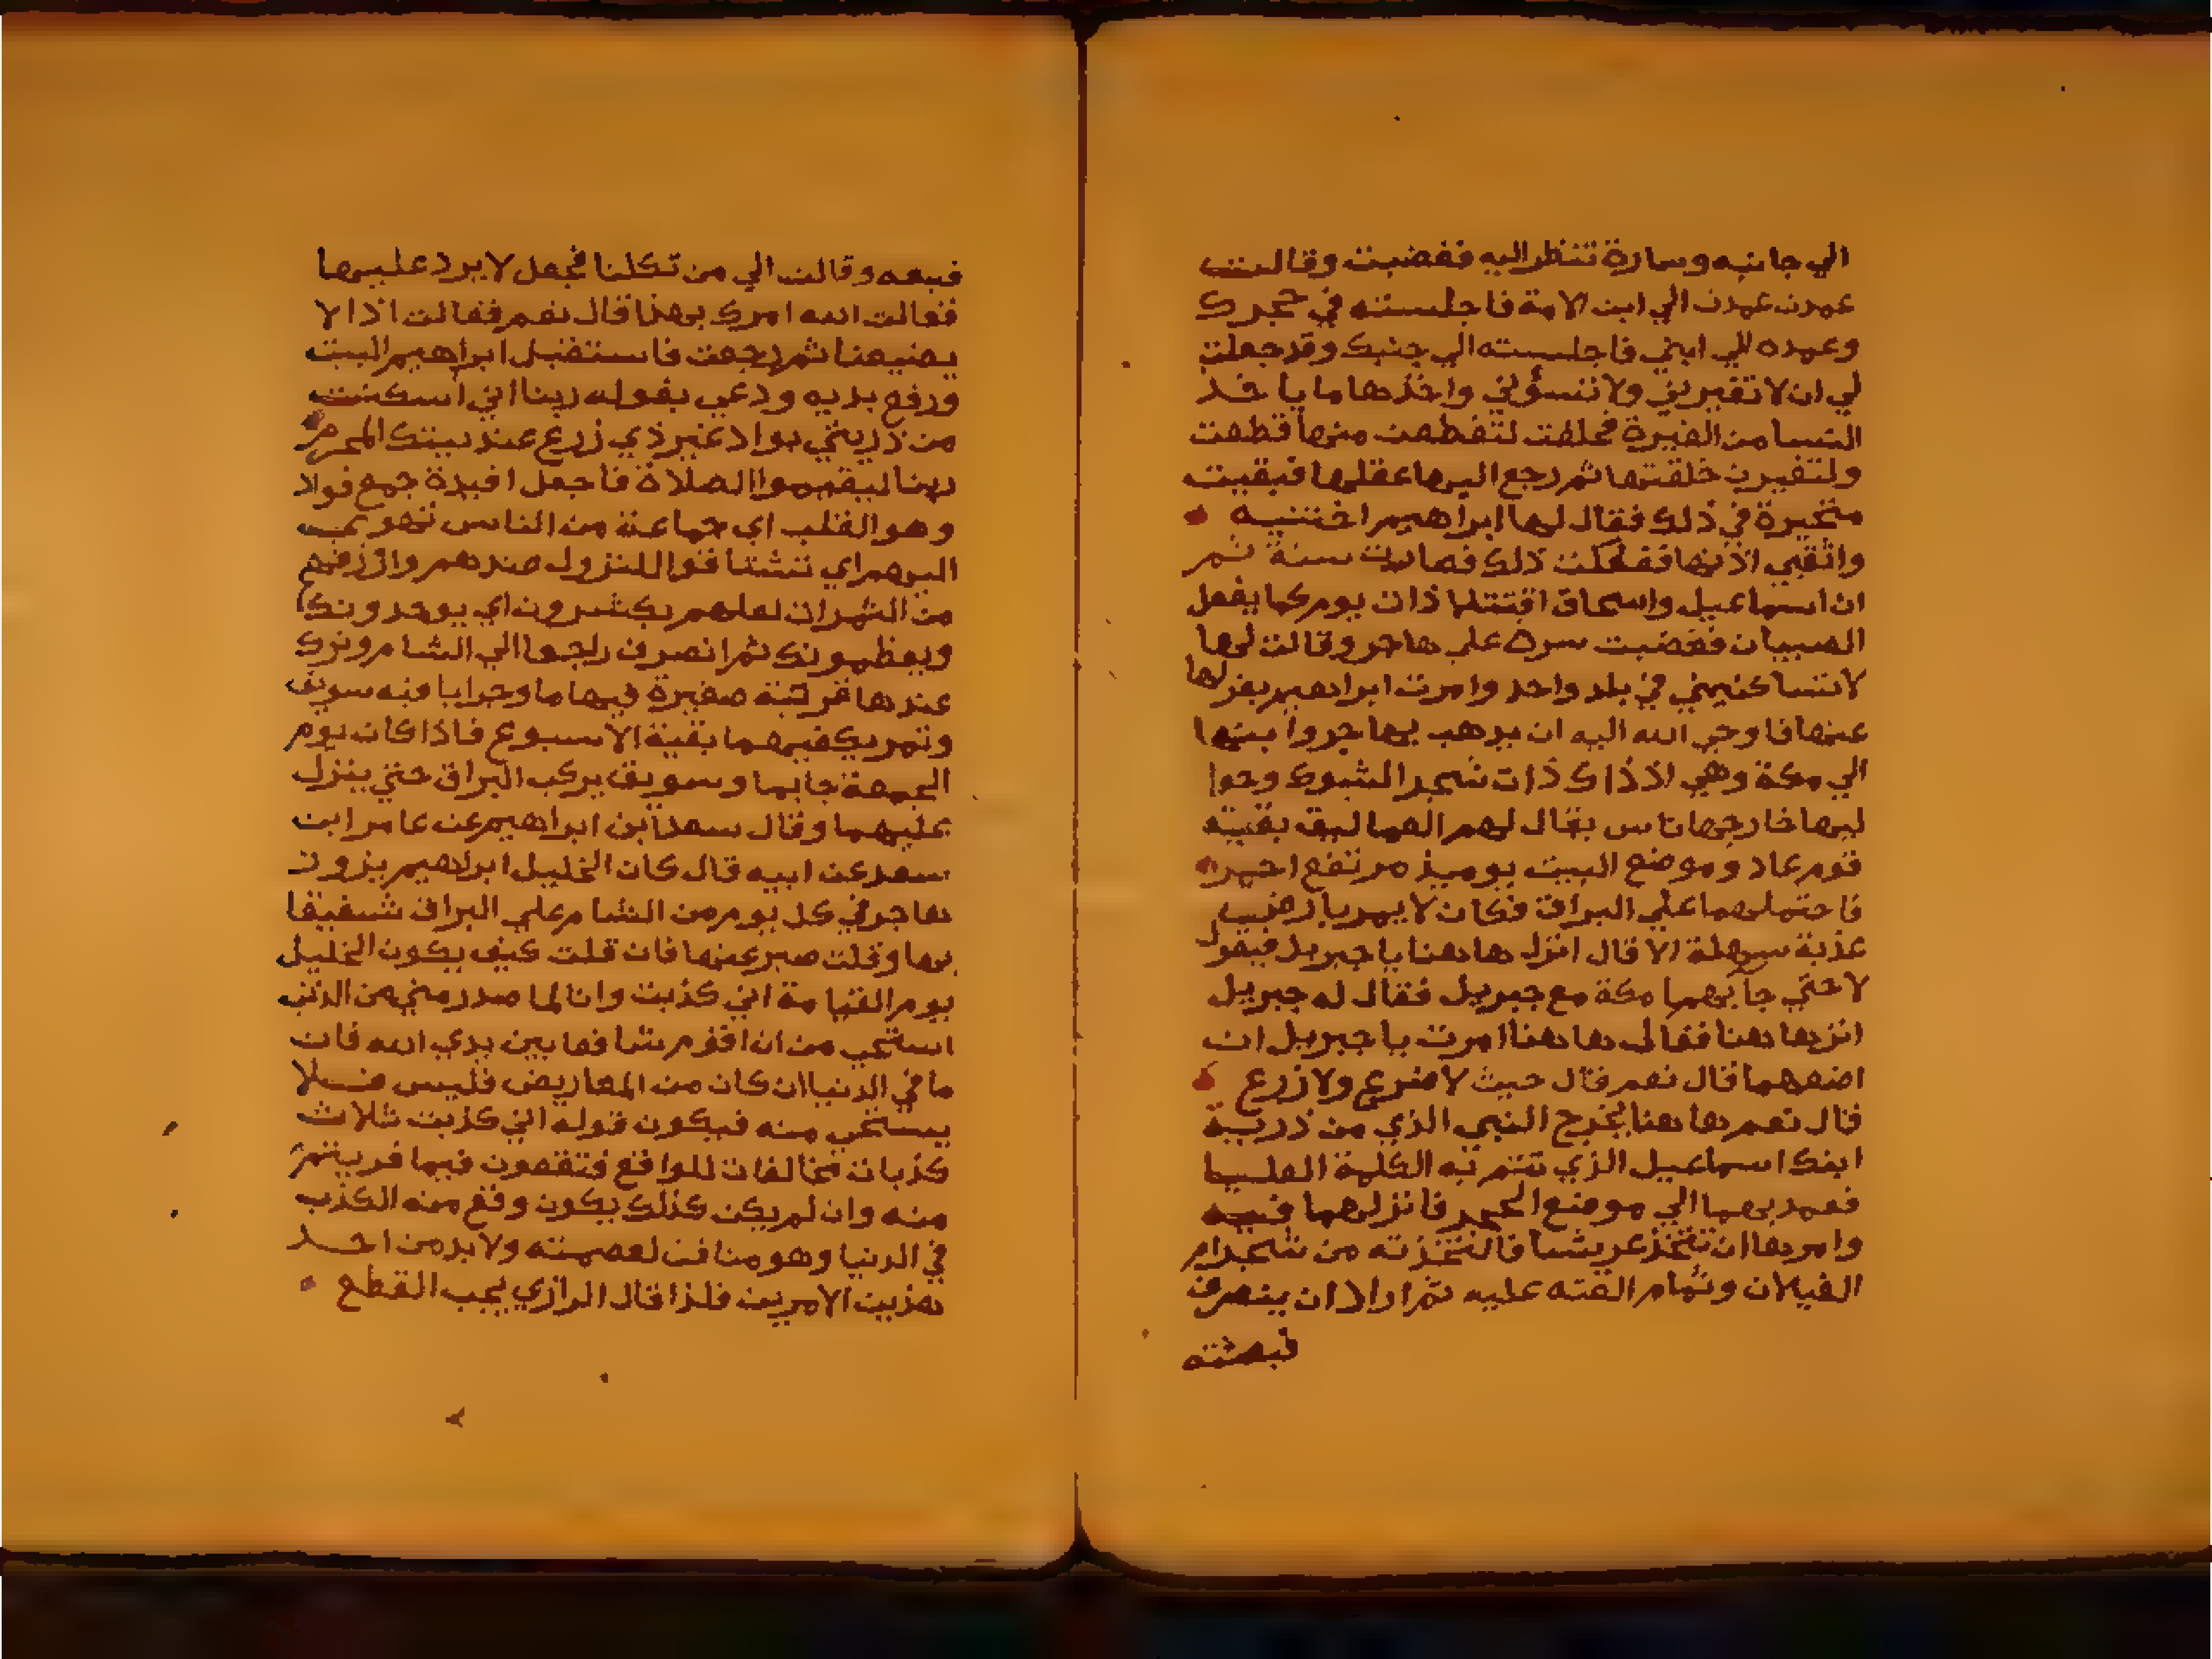 الي جانبه وسارة تنظر اليه فغضبت وقالت
عمدت عمدت الي ابن الامة فاجلسته في حجرك
وعمده الي ابني فاجلسته الي جنبك وقد جعلت
لي ان لا تغيرني ولا تسؤني واخذها ما ياخذ
النسا من الغيرة فحلفت لتقطعن منها قطعت
ولتغيرن خلقتها ثم رجع اليها عقلها فبقيت
متحيرة في ذلك فقال لها ابراهيم اختنيه
واثقبي اذنها ففعلت ذلك فصارت سنة ثم
ان اسماعيل واسحاق اقتتلا ذات يوم كما يفعل
الصبيان فغضبت سره علي هاجر وقالت لها
لا تساكنيني في بلد واحد وامرت ابراهيم بعزلها
عنها فاوحي الله اليه ان يذهب بها جر وابنها
الي مكة وهي اذ ذاك ذات شجر الشوك وحوا
ليها خارجها ناس يقال لهم العماليق بقية
قوم عاد وموضع البيت يوميذ مرتفع احمر
فاحتملهما علي البراق فكان لا يمر بارض
عذبة سهلة الا قال انزل هاهنا يا جبريل فيقول
لا حتي جا بهما مكة مع جبريل فقال له جبريل
انزها هنا فقال ها هنا امرت يا جبريل ان
اضعهما قال نعم قال حيث لا ضرع ولا زرع
قال نعم ها هنا يخرج النبي الذي من ذرية
ابنك اسماعيل الذي تتم به الكلمة العليا
فعمد بهما الي موضع الحجر فانزلهما فيه
وامرها ان تتخذ عريشا فاتخذته من شجرام
الغيلان وثمام القته عليه ثم اراد ان ينصرف
فبعثته
فبعه وقالت الي من تكلنا فجعل لا يرد عليها
فقالت الله امرك بهذا قال نعم فقالت اذا لا
يضيعنا ثم رجعت فاستقبل ابراهيم البيت
ورفع يديه ودعي بقوله ربنا اني اسكنت
من ذريتي بواد غير ذي زرع عند بيتك المحرم
ربنا ليقيموا الصلاة فاجعل افيدة جمع فواد
وهو القلب اي جماعة من الناس تهوي
اليهم اي تشتاقوا للنزول عندهم وارزقهم
من الثمران لعلهم يكشرون اي يوحدونك
ويعظمونك ثم انصرف راجعا الي الشام وترك
عندها قربته صغيرة فيها ما وجرابا فيه سويق
وتمر يكفيهما بقية الاسبوع فاذا كان يوم
الجمعة جا بما وسويق يركب البراق حتي ينزل
عليهما وقال سعد بن ابراهيم عن عامر ابن
سعد عن ابيه قال كان الخليل ابراهيم يزور
هاجر في كل يوم من الشام علي البراق شفيقا
بها وقلت صبر عنها فان قلت كيف يكون الخليل
يوم القيامة اني كذبت وانا لما صدر مني من الذنب
استحي من ان اقوم شافعا بين يدي الله فان
ما في الدنيا ان كان من المعاريض فليس
يستحي منه فيكون قوله اني كذبت ثلاث
كذبات مخالفات للواقع فتقعون فيما فريتم
منه وان لم يكن كذلك يكون وقع منه الكذب
في الدنيا وهو مناف لعصمته ولا بد من احد
هذين الامرين فلذا قال الرازي يجب القطع